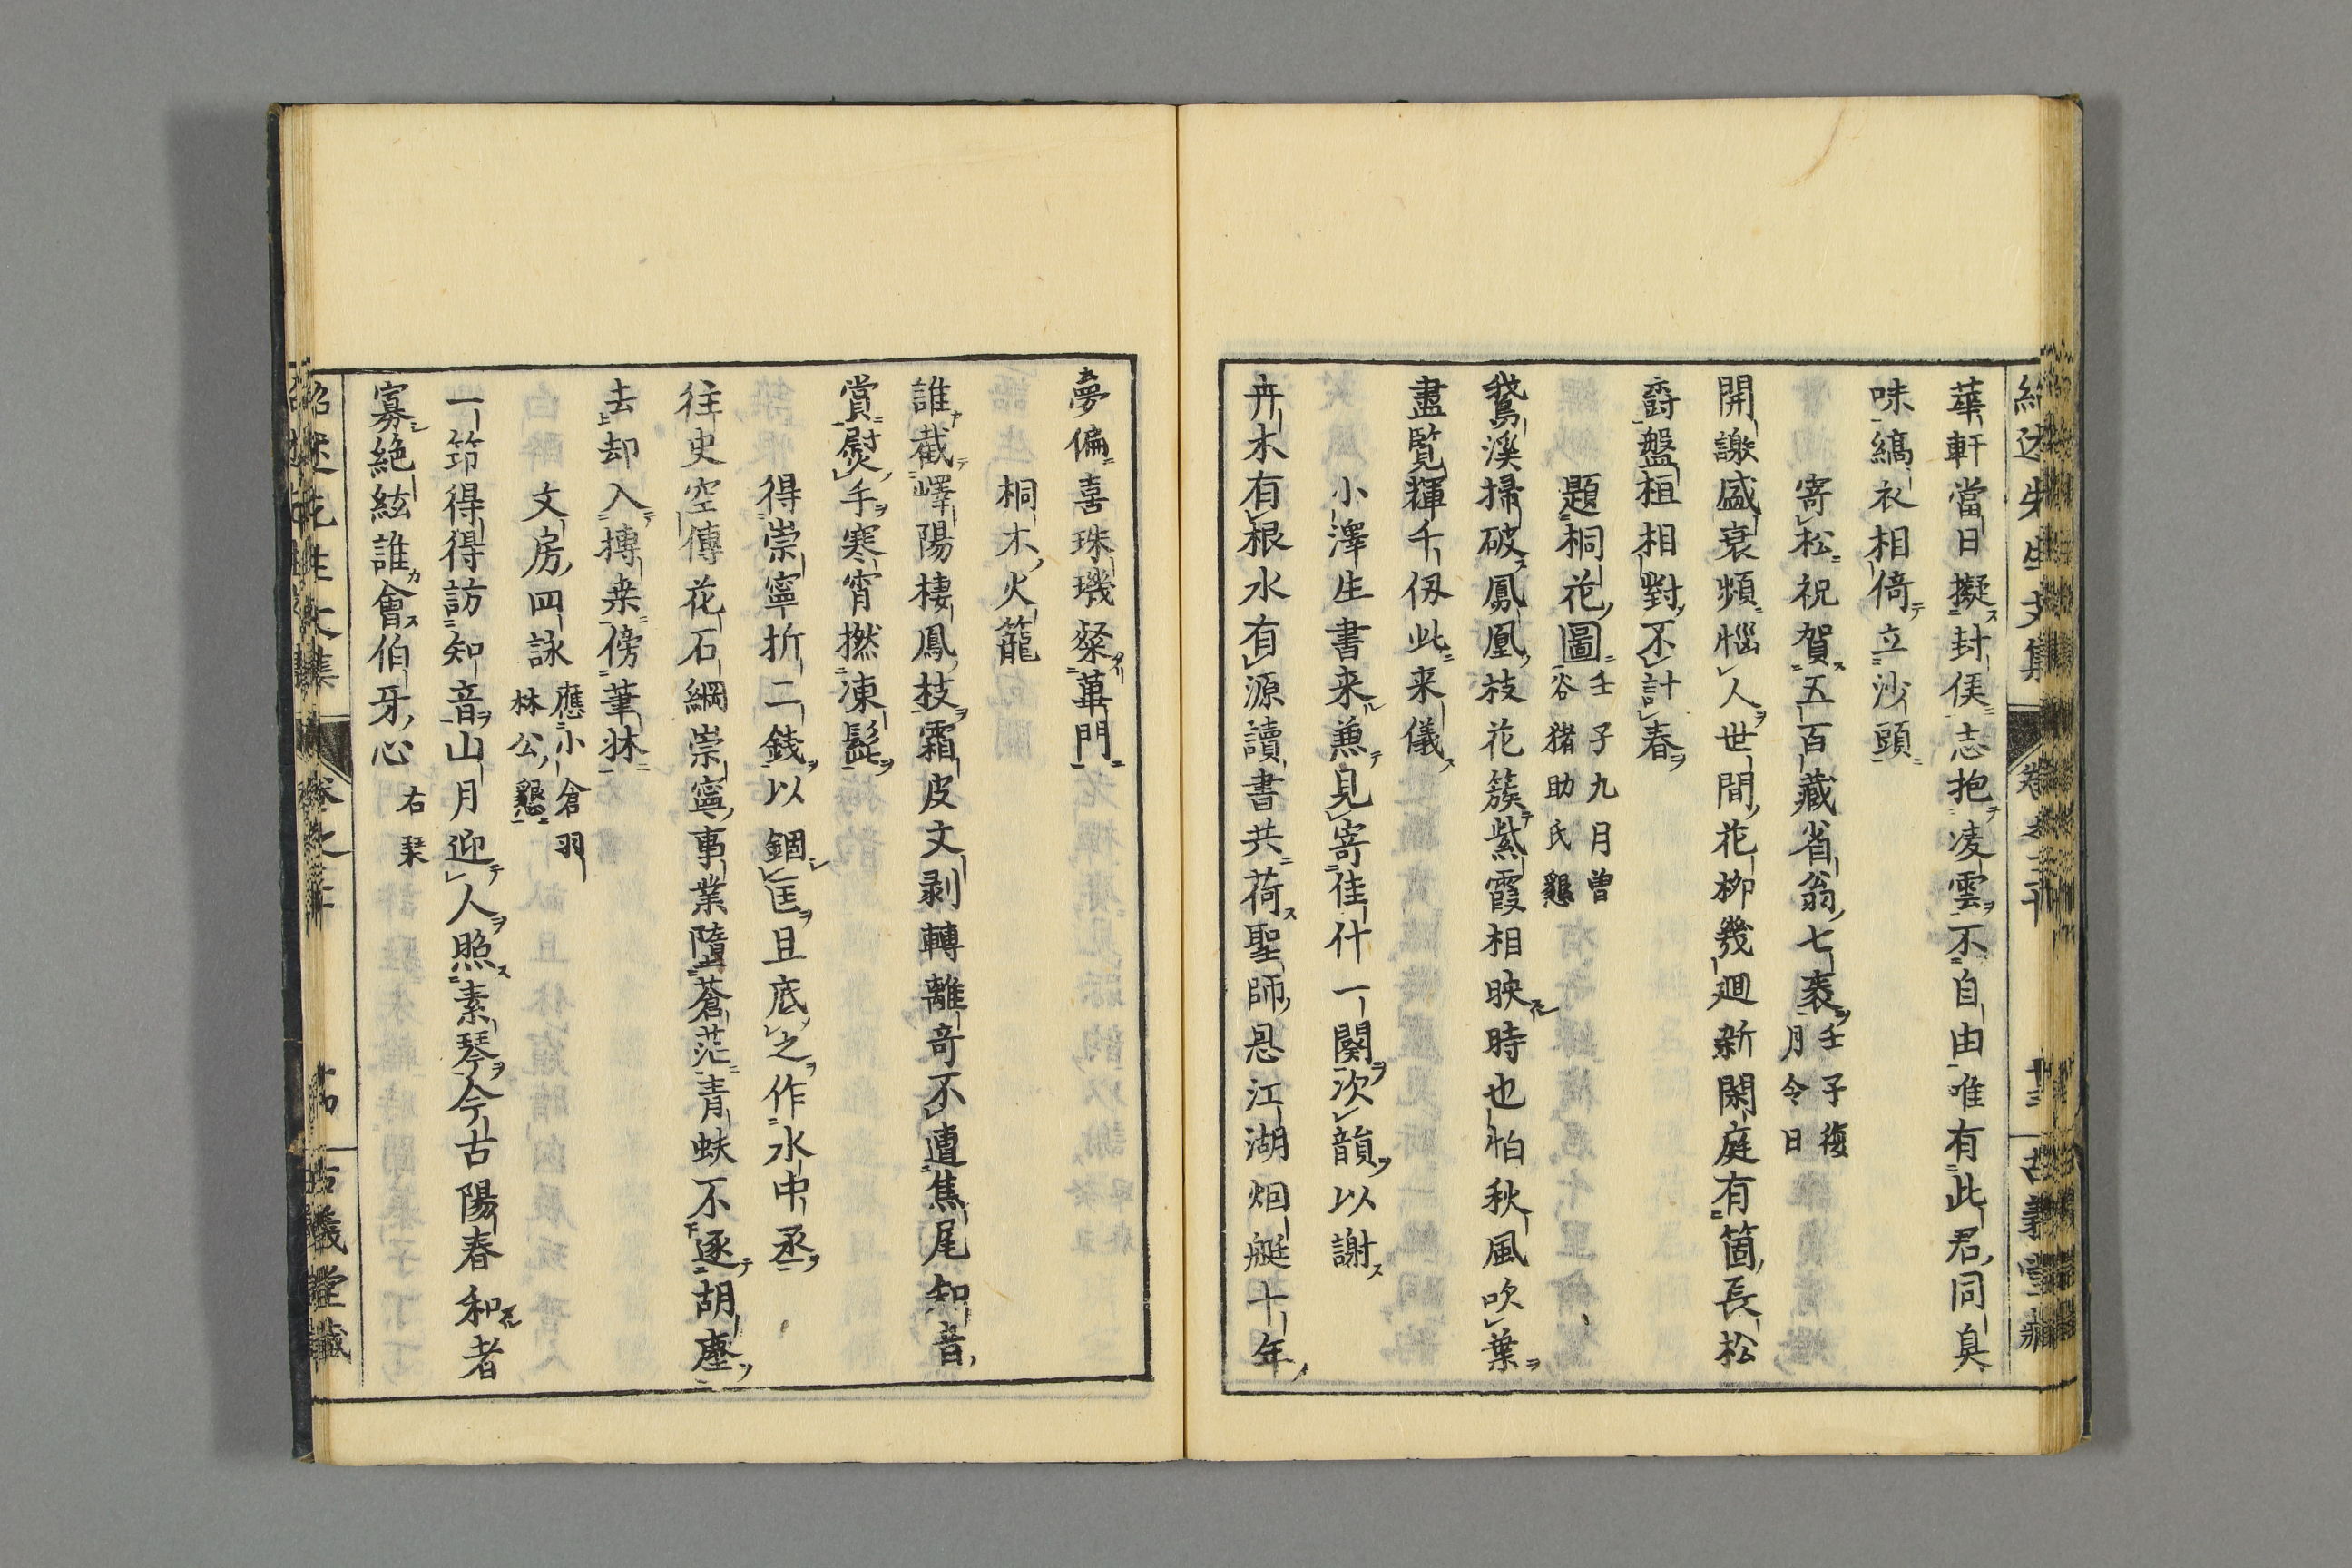 華軒當日擬封侯志抱凌雲不自由唯有此君同臭
味縞衣相倚立沙頭
寄松祝賀五百藏省翁七袠壬子復
月令日
開謝盛衰頻惱人世間花柳幾廻新閑庭有箇長松
爵盤桓相對不計春
題桐花圖壬子九月曽
谷猪助氏懇
鵞溪掃破鳳凰枝花簇紫霞相映時也怕秋風吹葉
盡覧輝千仭此来儀
小澤生書来兼見寄佳什一闋次韻以謝
卉木有根水有源讀書共荷聖師恩江湖烟艇十年
夢偏喜珠璣粲蓽門
桐木火籠
誰截嶧陽棲鳳枝霜皮文剥轉離奇不遭焦尾知音
賞熨手寒宵撚凍髭
得崇寧折二錢以錮匡且底之作水中丞
往史空傳花石綱崇寧事業墮蒼茫青蚨不逐胡塵
去却入摶桒傍筆牀
文房四詠應小倉羽
林公懇
一笻得得訪知音山月迎人照素琴今古陽春和者
寡絶絃誰會伯牙心右琹
紹述先生文集 卷之三十 古義堂藏